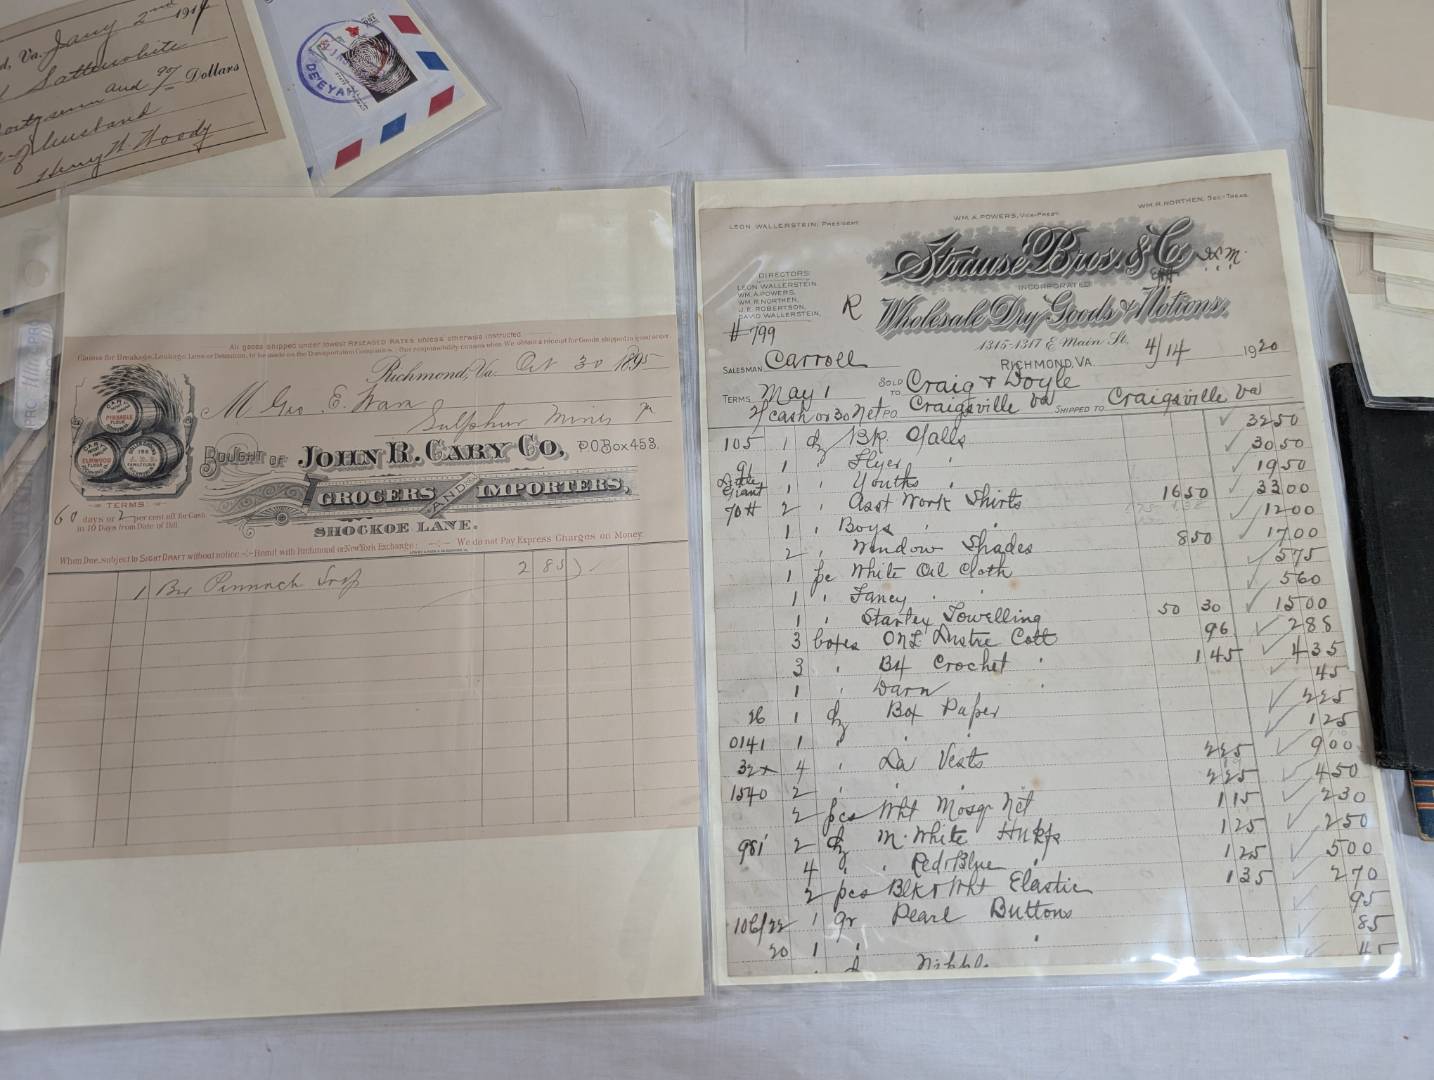 Va. Jany 2nd 1914
Sattewhite
and 90/ Dollars
husband
Henry W. Woody
DE'EYAN
All goods shipped under lowest RELEASED RATES unless otherwise instructed
Claims for Breakage, Leakage, Loss or Detention, to be made on the Transportation Companies. Our responsibility ceases when We obtain a receipt for Goods shipped in good order.
Richmond, Va. Oct 30 1895
M Geo. E. Wara
Sulphur Mines Va
Bought of JOHN R. CARY CO, P.O. Box 453.
GROCERS AND IMPORTERS,
SHOCKOE LANE.
CARY PINNACLE FLOUR
ELMWOOD FLOUR
TERMS
60 days or 2 per cent off for Cash
in 10 Days from Date of Bill
When Due, subject to SIGHT DRAFT without notice. Remit with Richmond or New York Exchange. We do not Pay Express Charges on Money.
1 Bx Pinnach Soap 2 85
LEON WALLERSTEIN, PRESIDENT
WM. A. POWERS, VICE-PREST.
WM. R. NORTHEN, SEC-TREAS.
Strause Bros. & Co
INCORPORATED
Wholesale Dry Goods & Notions.
1315-1317 E Main St.
DIRECTORS:
LEON WALLERSTEIN
WM. A. POWERS,
WM. R. NORTHEN,
J. E. ROBERTSON,
DAVID WALLERSTEIN,
R
#799
RICHMOND, VA. 4/14 1920
SALESMAN Carroll
SOLD TO Craig & Doyle
TERMS May 1
2/ cash or 30 Net PO Craigsville Va SHIPPED TO Craigsville Va
105 1 dz Blk. Oalls 32 50
91 1 " Flyer " 30 50
Little Giant 1 " Youths " 19 50
70# 2 " Asst Work Shirts 16 50 33 00
1 " Boys " " 12 00
2 " Window Shades 8 50 17 00
1 pc White Oil Cloth 5 75
1 " Fancy " " 5 60
1 " Stanley Towelling 50 30 15 00
3 boxes ONT Lustre Cott 96 2 88
3 " B4 Crochet " 1 45 4 35
1 " Darn " 45
26 1 dz Box Paper 2 25
0141 1 " " " 1 25
32x 4 " La Vests 2 25 9 00
1540 2 " " " 2 25 4 50
2 pcs Wht Mosqr Net 1 15 2 30
981 2 dz M. White Hnkfs 1 25 2 50
4 " " Red & Blue " 1 25 5 00
2 pcs Blk & Wht Elastic 1 35 2 70
106/22 1 gr Pearl Buttons 95
20 1 " " 85